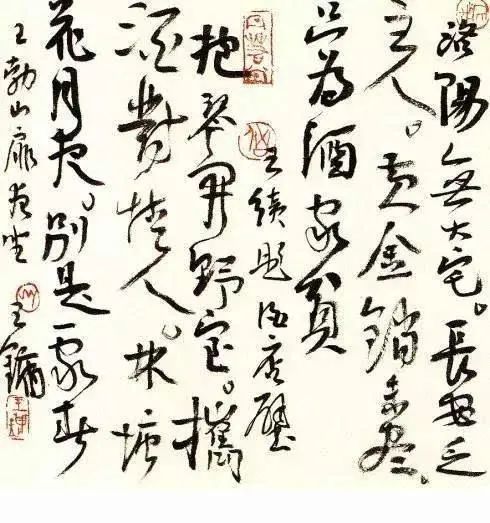 洛陽無大宅。長安乏
主人。黃金銷未盡。
只為酒家貧
王績題酒店壁
抱琴開野室。攜
酒對情人。林塘
花月夜。別是一家春
王勃山扉夜坐
王鏞